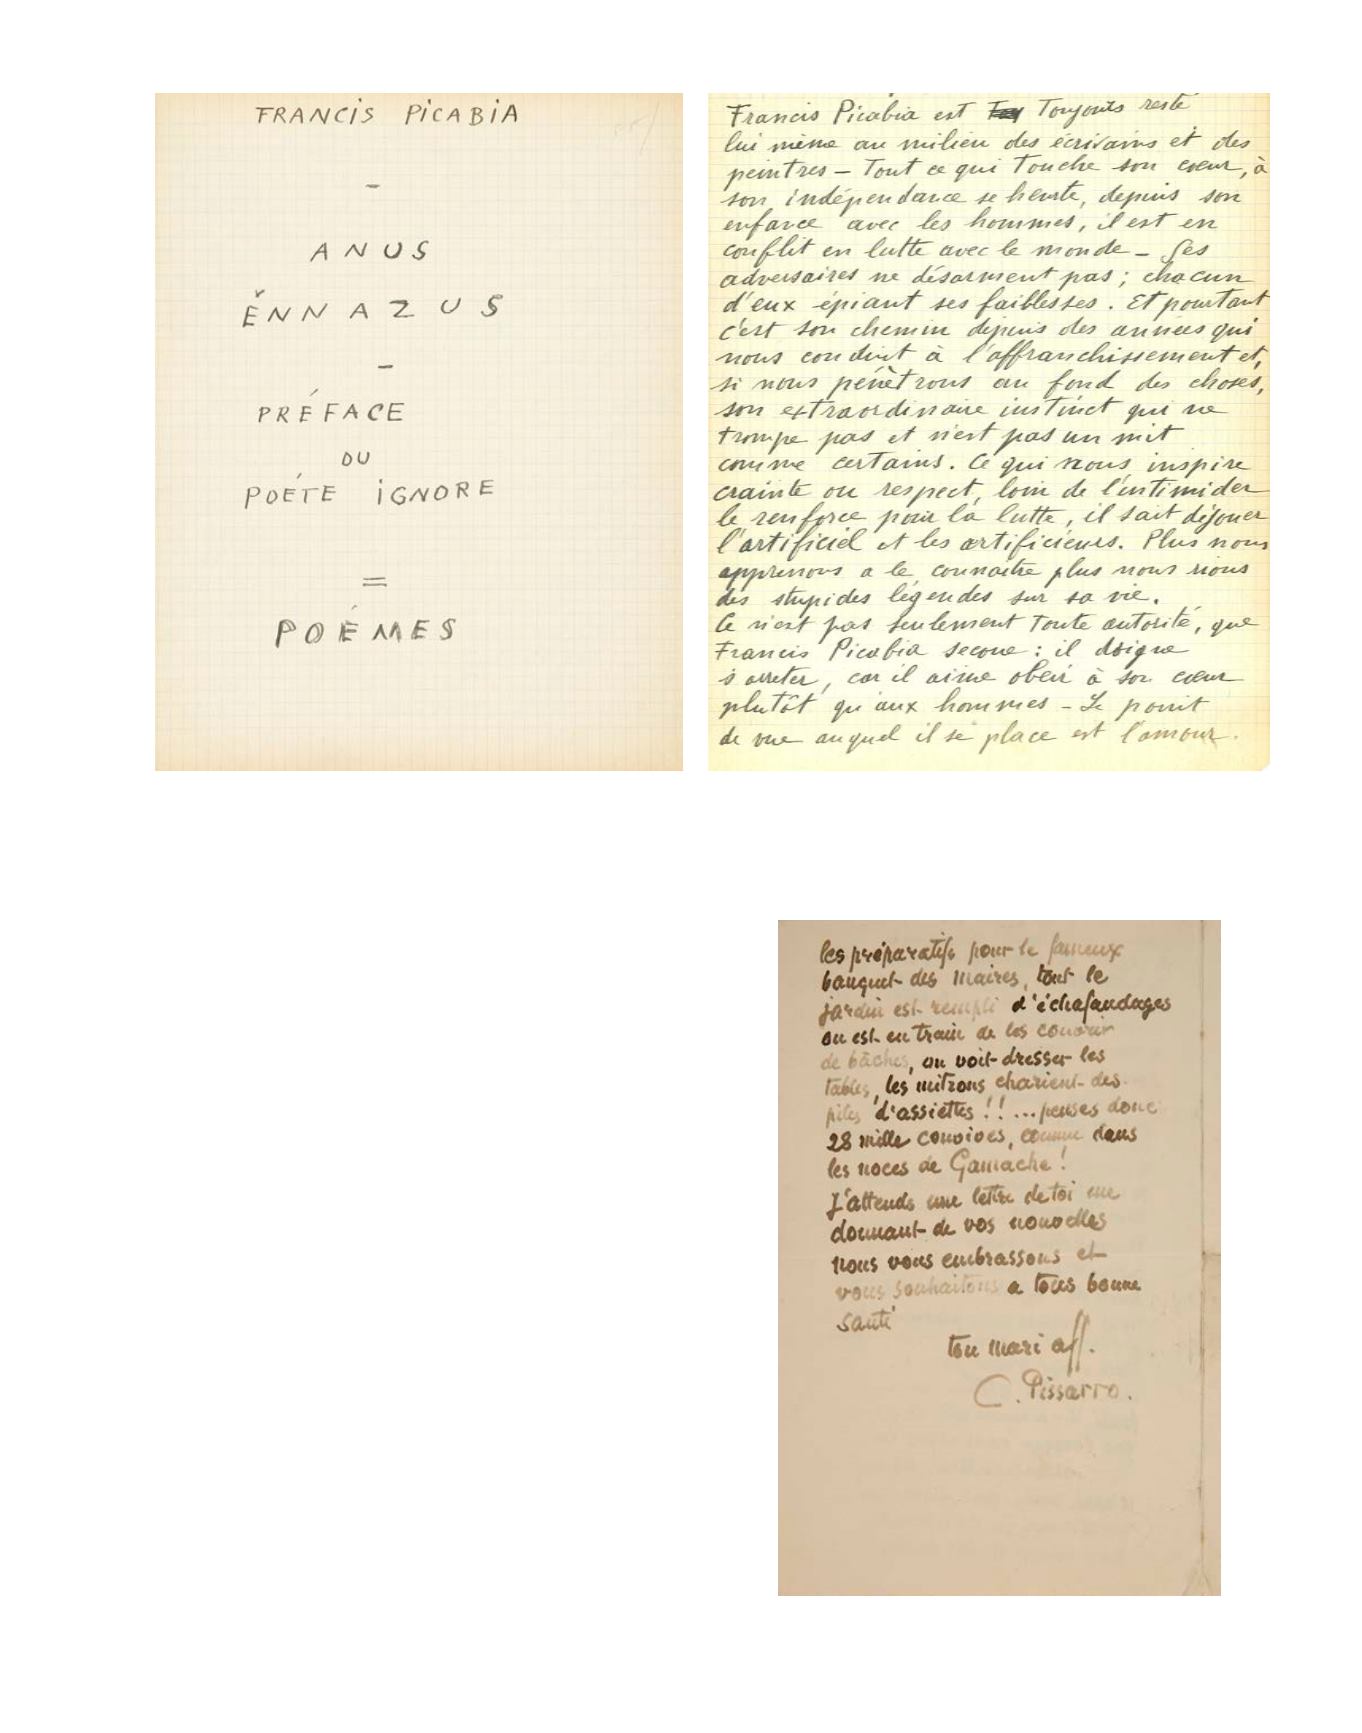 FRANCIS PICABIA
–
ANUS
ÉNNAZUS
–
PRÉFACE
DU
POÉTE IGNORE
=
POÉMES
Francis Picabia est Toujours resté
lui même au milieu des écrivains et des
peintres – Tout ce qui Touche son cœur, à
son indépendance se heurte, depuis son
enfance avec les hommes, il est en
conflit en lutte avec le monde – Ses
adversaires ne désarment pas ; chacun
d'eux épiant ses faiblesses. Et pourtant
c'est son chemin depuis des années qui
nous conduit à l'affranchissement et,
si nous pénètrons au fond des choses,
son extraordinaire instinct qui ne
trompe pas et n'est pas un mit
comme certains. Ce qui nous inspire
crainte ou respect, loin de l'intimider
le renforce pour la lutte, il sait déjouer
l'artificiel et les artificieurs. Plus nous
apprenons a le connaitre plus nous rions
des stupides légendes sur sa vie.
Ce n'est pas seulement Toute autorité, que
Francis Picabia secoue : il
s'arreter, car il aime obéir à son cœur
plutôt qu'aux hommes – Le point
de vue auquel il se place est l'amour.
les préparatifs pour le fameux
banquet des Maires, tout le
jardin est rempli d'échafaudages
on est en train de les couvrir
de bâches, on voit dresser les
tables, les mitrons charient des
piles d'assiettes !! ... penses donc
28 mille convives, comme dans
les noces de Gamache !
J'attends une lettre de toi me
donnant de vos nouvelles
nous vous embrassons et
vous souhaitons a tous bonne
santé
ton mari aff.
C. Pissarro.